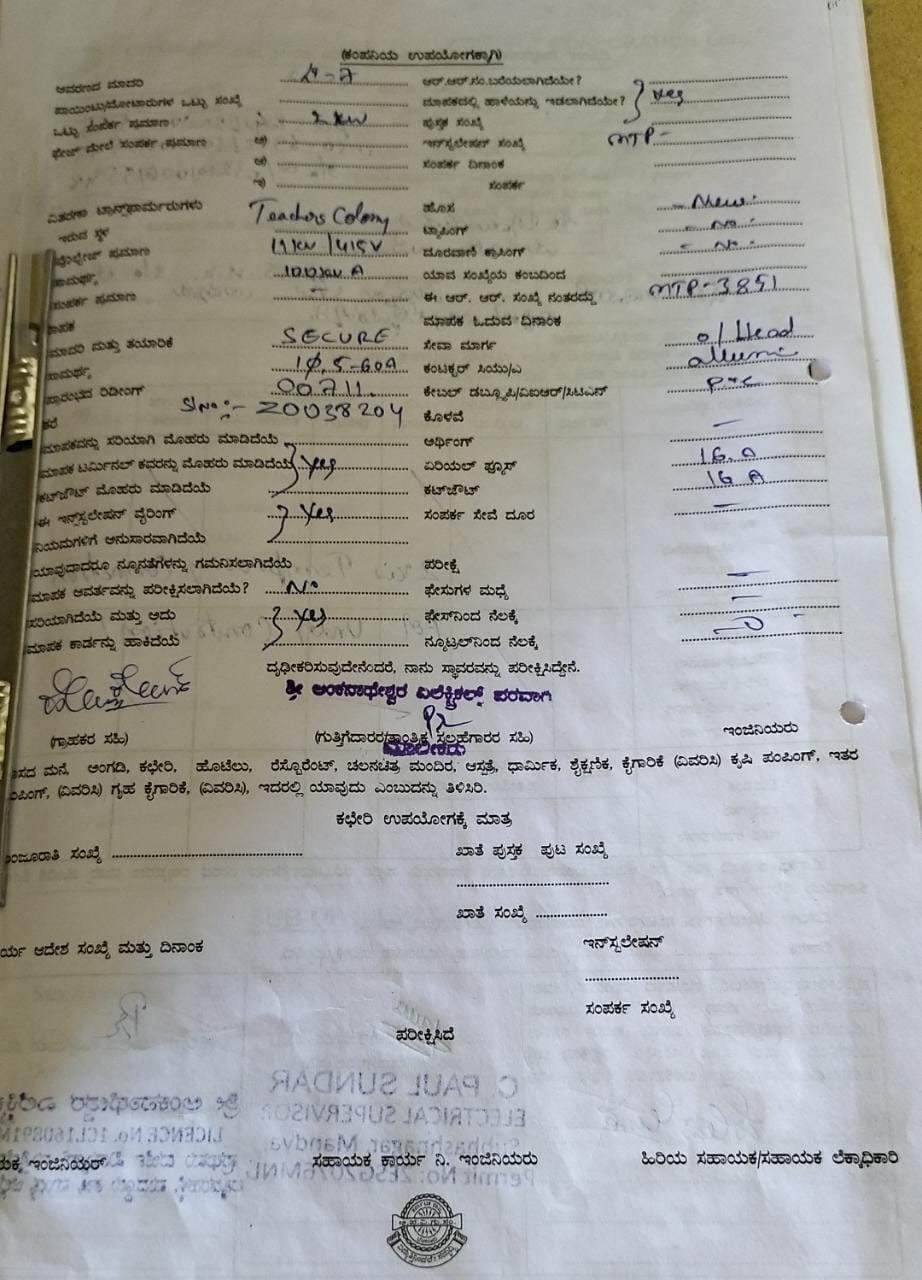 (ಕಂಪನಿಯ ಉಪಯೋಗಕ್ಕಾಗಿ)
ಆವರಣದ ಮಾದರಿ ಆರ್.ಆರ್.ನಂ.ಬರೆಯಲಾಗಿದೆಯೇ?
ಪಾಯಿಂಟು/ಮೋಟಾರುಗಳ ಒಟ್ಟು ಸಂಖ್ಯೆ ಮಾಪಕದಲ್ಲಿ ಹಾಳೆಯನ್ನು ಇಡಲಾಗಿದೆಯೇ? Yes
ಒಟ್ಟು ಸಂಪರ್ಕ ಪ್ರಮಾಣ : 2 KW ಪುಸ್ತಕ ಸಂಖ್ಯೆ
ಫೇಜ್ ಮೇಲೆ ಸಂಪರ್ಕ ಪ್ರಮಾಣ ಇನ್‌ಸ್ಟಲೇಷನ್ ಸಂಖ್ಯೆ MTP-
ಸಂಪರ್ಕ ದಿನಾಂಕ
ಸಂಪರ್ಕ
ವಿತರಣಾ ಟ್ರಾನ್ಸ್‌ಫಾರ್ಮರುಗಳು Teachers Colony ಹೊಸ New
ಇರುವ ಸ್ಥಳ ಟ್ಯಾಪಿಂಗ್ No
ವೋಲ್ಟೇಜ್ ಪ್ರಮಾಣ 11 KV / 415 V ದೂರವಾಣಿ ಕ್ರಾಸಿಂಗ್ No
ಸಾಮರ್ಥ್ಯ ಯಾವ ಸಂಖ್ಯೆಯ ಕಂಬದಿಂದ
ಸಂಪರ್ಕ ಪ್ರಮಾಣ - ಈ ಆರ್. ಆರ್. ಸಂಖ್ಯೆ ನಂತರದ್ದು MTP-3851
ಮಾಪಕ ಮಾಪಕ ಓದುವ ದಿನಾಂಕ
ಮಾದರಿ ಮತ್ತು ತಯಾರಿಕೆ SECURE ಸೇವಾ ಮಾರ್ಗ o/Head
ಸಾಮರ್ಥ್ಯ 1Ø, 5-60A ಕಂಡಕ್ಟರ್ ಸಿಯು/ಎ
ಪ್ರಾರಂಭದ ರಿಡಿಂಗ್ 00711 ಕೇಬಲ್ ಡಬ್ಲ್ಯೂಪಿ/ವಿಐಆರ್/ಸಿಟಿಎನ್ pvc
ಕರೆ Sl No :- Z0038204 ಕೊಳವೆ -
ಮಾಪಕವನ್ನು ಸರಿಯಾಗಿ ಮೊಹರು ಮಾಡಿದೆಯೆ ಅರ್ಥಿಂಗ್
ಮಾಪಕ ಟರ್ಮಿನಲ್ ಕವರನ್ನು ಮೊಹರು ಮಾಡಿದೆಯೆ Yes ಏರಿಯಲ್ ಫ್ಯೂಸ್ 16 A
ಕಟ್‌ಔಟ್ ಮೊಹರು ಮಾಡಿದೆಯೆ ಕಟ್‌ಔಟ್ 16 A
ಈ ಇನ್‌ಸ್ಟಲೇಷನ್ ವೈರಿಂಗ್ Yes ಸಂಪರ್ಕ ಸೇವೆ ದೂರ -
ನಿಯಮಗಳಿಗೆ ಅನುಸಾರವಾಗಿದೆಯೆ
ಯಾವುದಾದರೂ ನ್ಯೂನತೆಗಳನ್ನು ಗಮನಿಸಲಾಗಿದೆಯೆ ಪರೀಕ್ಷೆ
ಮಾಪಕ ಆವರ್ತವನ್ನು ಪರೀಕ್ಷಿಸಲಾಗಿದೆಯೆ? No ಫೇಸುಗಳ ಮಧ್ಯೆ -
ಸರಿಯಾಗಿದೆಯೆ ಮತ್ತು ಅದು Yes ಫೇಸ್‌ನಿಂದ ನೆಲಕ್ಕೆ -
ಮಾಪಕ ಕಾರ್ಡನ್ನು ಹಾಕಿದೆಯೆ ನ್ಯೂಟ್ರಲ್‌ನಿಂದ ನೆಲಕ್ಕೆ
ದೃಢೀಕರಿಸುವುದೇನೆಂದರೆ, ನಾನು ಸ್ಥಾವರವನ್ನು ಪರೀಕ್ಷಿಸಿದ್ದೇನೆ.
ಶ್ರೀ ಅಂಕನಾಥೇಶ್ವರ ಎಲೆಕ್ಟ್ರಿಕಲ್ಸ್ ಪರವಾಗಿ
(ಗ್ರಾಹಕರ ಸಹಿ) (ಗುತ್ತಿಗೆದಾರರ/ತಾಂತ್ರಿಕ ಸಲಹೆಗಾರರ ಸಹಿ) ಇಂಜಿನಿಯರು
ಮಾಲೀಕರು
ವಾಸದ ಮನೆ, ಅಂಗಡಿ, ಕಛೇರಿ, ಹೊಟೆಲು, ರೆಸ್ಟೊರೆಂಟ್, ಚಲನಚಿತ್ರ ಮಂದಿರ, ಆಸ್ಪತ್ರೆ, ಧಾರ್ಮಿಕ, ಶೈಕ್ಷಣಿಕ, ಕೈಗಾರಿಕೆ (ವಿವರಿಸಿ) ಕೃಷಿ ಪಂಪಿಂಗ್, ಇತರ
ಪಂಪಿಂಗ್, (ವಿವರಿಸಿ) ಗೃಹ ಕೈಗಾರಿಕೆ, (ವಿವರಿಸಿ), ಇದರಲ್ಲಿ ಯಾವುದು ಎಂಬುದನ್ನು ತಿಳಿಸಿರಿ.
ಕಛೇರಿ ಉಪಯೋಗಕ್ಕೆ ಮಾತ್ರ
ಮಂಜೂರಾತಿ ಸಂಖ್ಯೆ ಖಾತೆ ಪುಸ್ತಕ ಪುಟ ಸಂಖ್ಯೆ
ಖಾತೆ ಸಂಖ್ಯೆ
ಕಾರ್ಯ ಆದೇಶ ಸಂಖ್ಯೆ ಮತ್ತು ದಿನಾಂಕ ಇನ್‌ಸ್ಟಲೇಷನ್
ಸಂಪರ್ಕ ಸಂಖ್ಯೆ
ಪರೀಕ್ಷಿಸಿದೆ
C. PAUL SUNDAR
ELECTRICAL SUPERVISOR
Subhashnagar, Mandya
ಸಹಾಯಕ ಇಂಜಿನಿಯರ್ ಸಹಾಯಕ ಕಾರ್ಯ ನಿ. ಇಂಜಿನಿಯರು ಹಿರಿಯ ಸಹಾಯಕ/ಸಹಾಯಕ ಲೆಕ್ಕಾಧಿಕಾರಿ